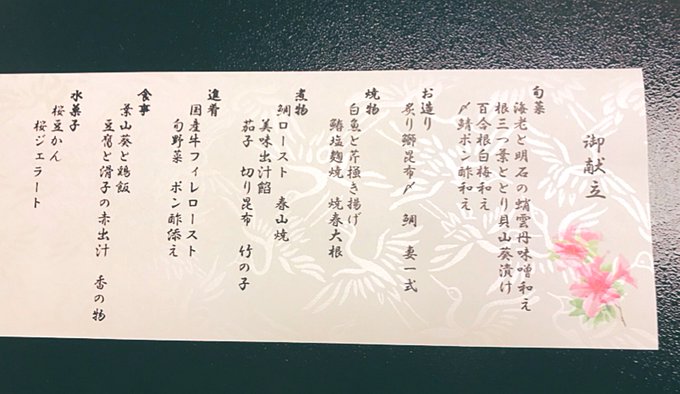 御献立
旬菜
海老と明石の蛸雲丹味噌和え
根三つ葉ととり貝山葵漬け
百合根白梅和え
〆鯖ポン酢和え
お造り
炙り鰤昆布〆 鯛 妻一式
焼物
白魚と芹掻き揚げ
鰆塩麹焼 焼春大根
煮物
鯛ロースト 春山焼
美味出汁餡
茄子 切り昆布 竹の子
進肴
国産牛フィレロースト
旬野菜 ポン酢添え
食事
葉山葵と鶏飯
豆腐と滑子の赤出汁 香の物
水菓子
桜豆かん
桜ジェラート